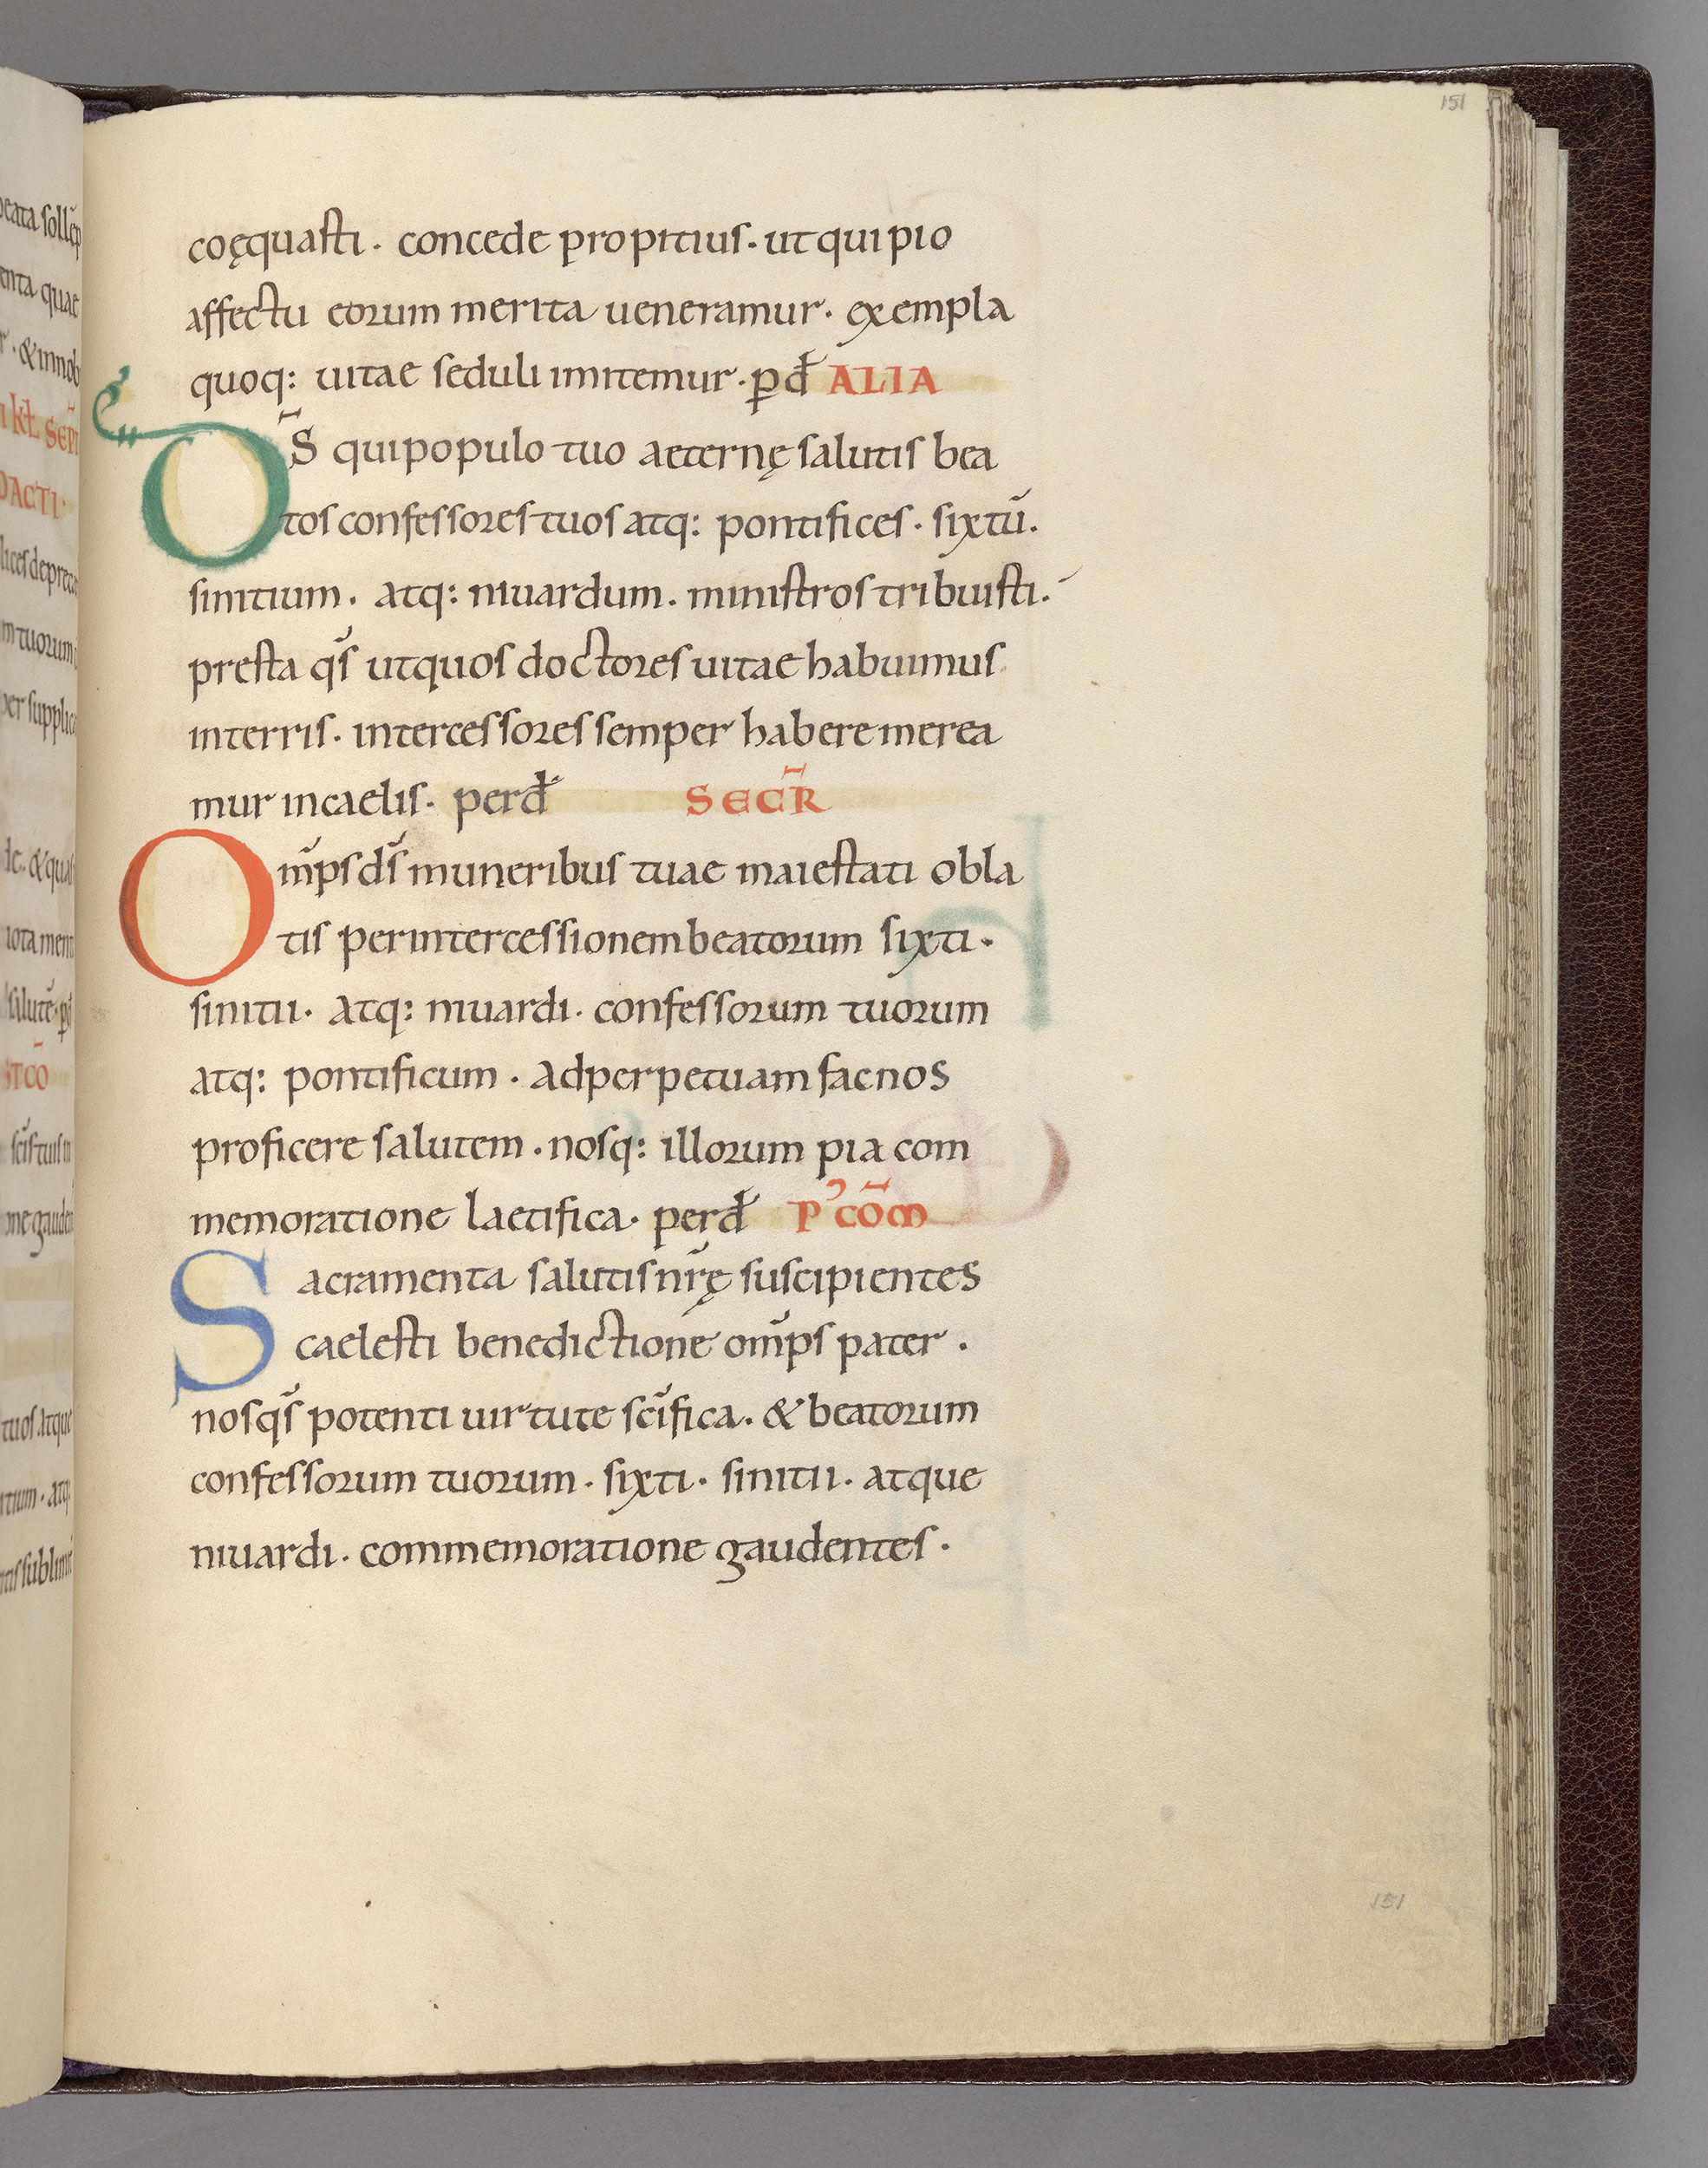 151
coęquasti · concede propitius · ut qui pio
affectu eorum merita ueneramur · exempla
quoq: uitae seduli imitemur · ꝑ đ ALIA
D̄S qui populo tuo aeternę salutis bea
tos confessores tuos atq: pontifices · sixtū ·
sinitium · atq: niuardum · ministros tribuisti ·
presta qs̄ ut quos doctores uitae habuimus
in terris · intercessores semper habere merea
mur in caelis · per đ SECR̄
Om̄ps ds̄ muneribus tuae maiestati obla
tis per intercessionem beatorum sixti ·
sinitii · atq: niuardi · confessorum tuorum
atq: pontificum · ad perpetuam fac nos
proficere salutem · nosq: illorum pia com
memoratione laetifica · per đ P' CŌM
Sacramenta salutis nr̄ę suscipientes
caelesti benedictione om̄ps pater ·
nos qs̄ potenti uirtute scīfica · & beatorum
confessorum tuorum · sixti · sinitii · atque
niuardi · commemoratione gaudentes ·
151